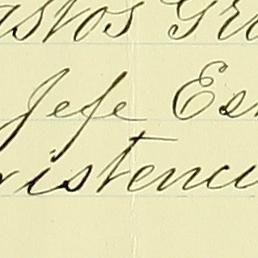 astos Gra
Jefe Es
istenci